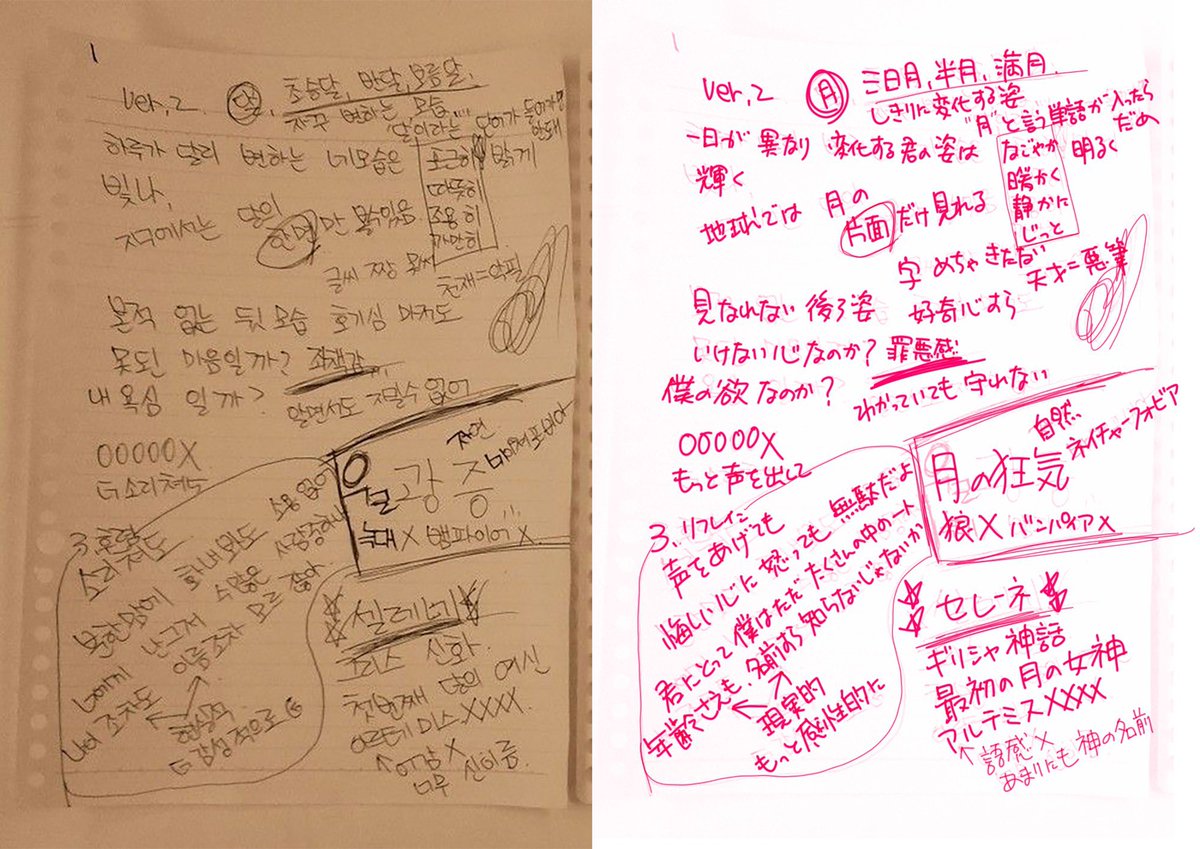 1
ver, 2
달, 초승달, 반달, 보름달,
자꾸 변하는 모습
달이라는 단어가 들어가면 안돼
하루가 달리 변하는 네모습은 포근히 밝게
따뜻히
조용히
가만히
빛나,
지구에서는 달의 한면만 볼수있음
글씨 짱 못써
천재=악필
본적 없는 뒷모습 호기심 마저도
못된 마음일까? 죄책감,
내 욕심 일까? 알면서도 지킬수 없어
OOOOOX
자연
월광증
늑대X 뱀파이어X
3.후렴
소리쳐도 화내봐도 소용 없어
분한 맘에
난 그저 수많은 사람중 하나
너에게 이름조차 모르잖아
나이 조차도
현실적
감성적으로
셀레네
신화
첫번째 달의 여신
아르테미스XXXX
↑어감X
너무 신이름.
1
ver, 2
月 三日月, 半月, 満月.
しきりに変化する姿
"月"と言う単語が入ったらだめ
一日が異なり変化する君の姿は なごやか 明るく
暖かく
静かに
じっと
輝く
地球では月の片面だけ見れる
字めちゃきたない
天才=悪筆
見なれない後ろ姿 好奇心すら
いけない心なのか? 罪悪感
僕の欲なのか? わかっていても守れない
OOOOOX
もっと声を出して
自然
ネイチャーフォビア
月の狂気
狼X バンパイアX
3. リフレイン
声をあげても 怒っても 無駄だよ
悔しい心に
君にとって僕はただたくさんの中の一ト
年齢さえも、名前すら知らないじゃないか
現実的
もっと感性的に
セレーネ
ギリシャ神話
最初の月の女神
アルテミスXXXX
↑語感X
あまりにも神の名前